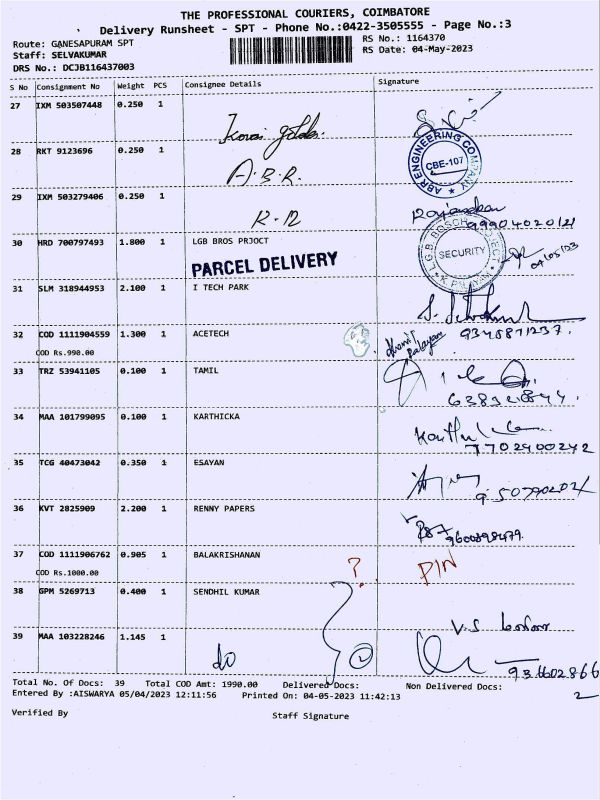 THE PROFESSIONAL COURIERS, COIMBATORE
Delivery Runsheet - SPT - Phone No.:0422-3505555 - Page No.:3
Route: GANESAPURAM SPT
RS No.: 1164370
Staff: SELVAKUMAR
RS Date: 04-May-2023
DRS No.: DCJB116437003
S No Consignment No Weight PCS Consignee Details Signature
27 IXM 503507448 0.250 1
28 RKT 9123696 0.250 1
A.B.R.
ABR ENGINEERING COMPANY
CBE-107
29 IXM 503279406 0.250 1
K-12
30 HRD 700797493 1.800 1 LGB BROS PRJOCT
PARCEL DELIVERY
SECURITY
31 SLM 318944953 2.100 1 I TECH PARK
32 COD 1111904559 1.300 1 ACETECH
9345871237.
COD Rs.990.00
33 TRZ 53941105 0.100 1 TAMIL
34 MAA 101799095 0.100 1 KARTHICKA
7702400242
35 TCG 40473042 0.350 1 ESAYAN
36 KVT 2825909 2.200 1 RENNY PAPERS
37 COD 1111906762 0.905 1 BALAKRISHANAN
? PIN
COD Rs.1000.00
38 GPM 5269713 0.400 1 SENDHIL KUMAR
V.S
39 MAA 103228246 1.145 1
do
Total No. Of Docs: 39 Total COD Amt: 1990.00 Delivered Docs: Non Delivered Docs:
Entered By :AISWARYA 05/04/2023 12:11:56 Printed On: 04-05-2023 11:42:13
Verified By
Staff Signature